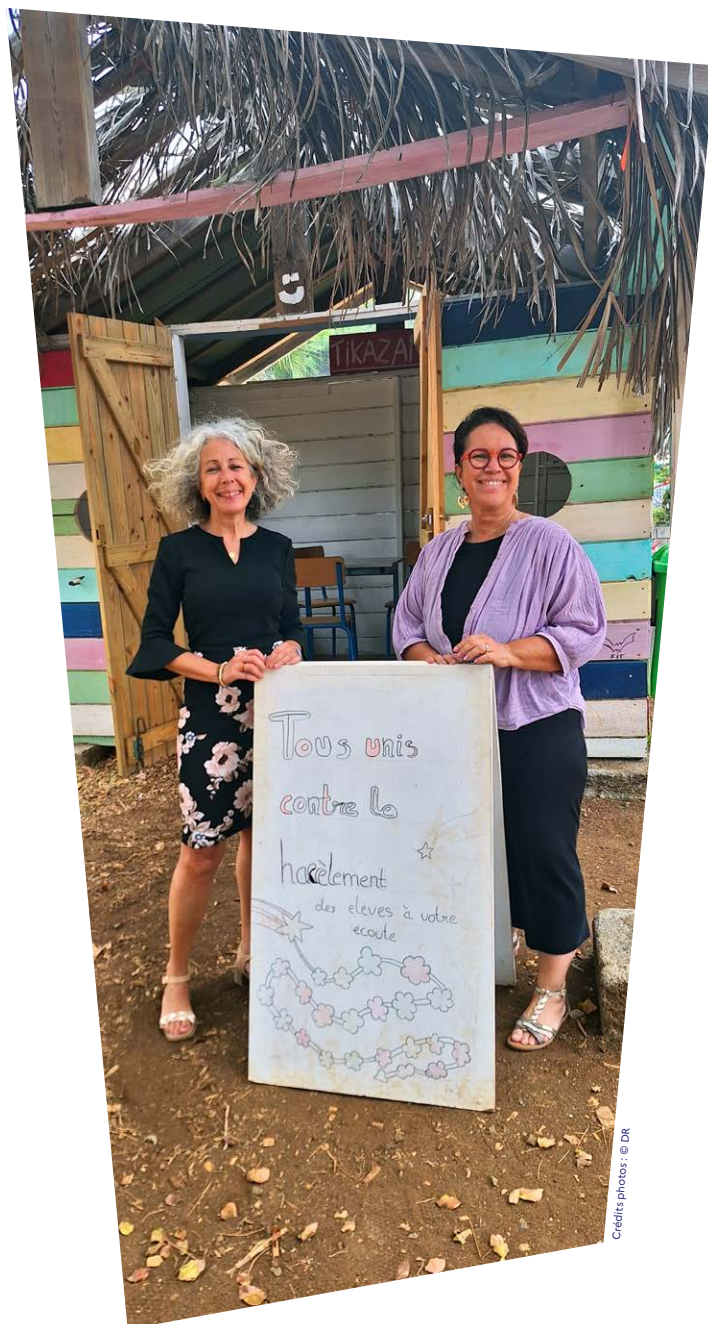 TiKAZA
Tous unis
contre le
harcèlement
des eleves à votre
ecoute
FIT
Crédits photos : © DR